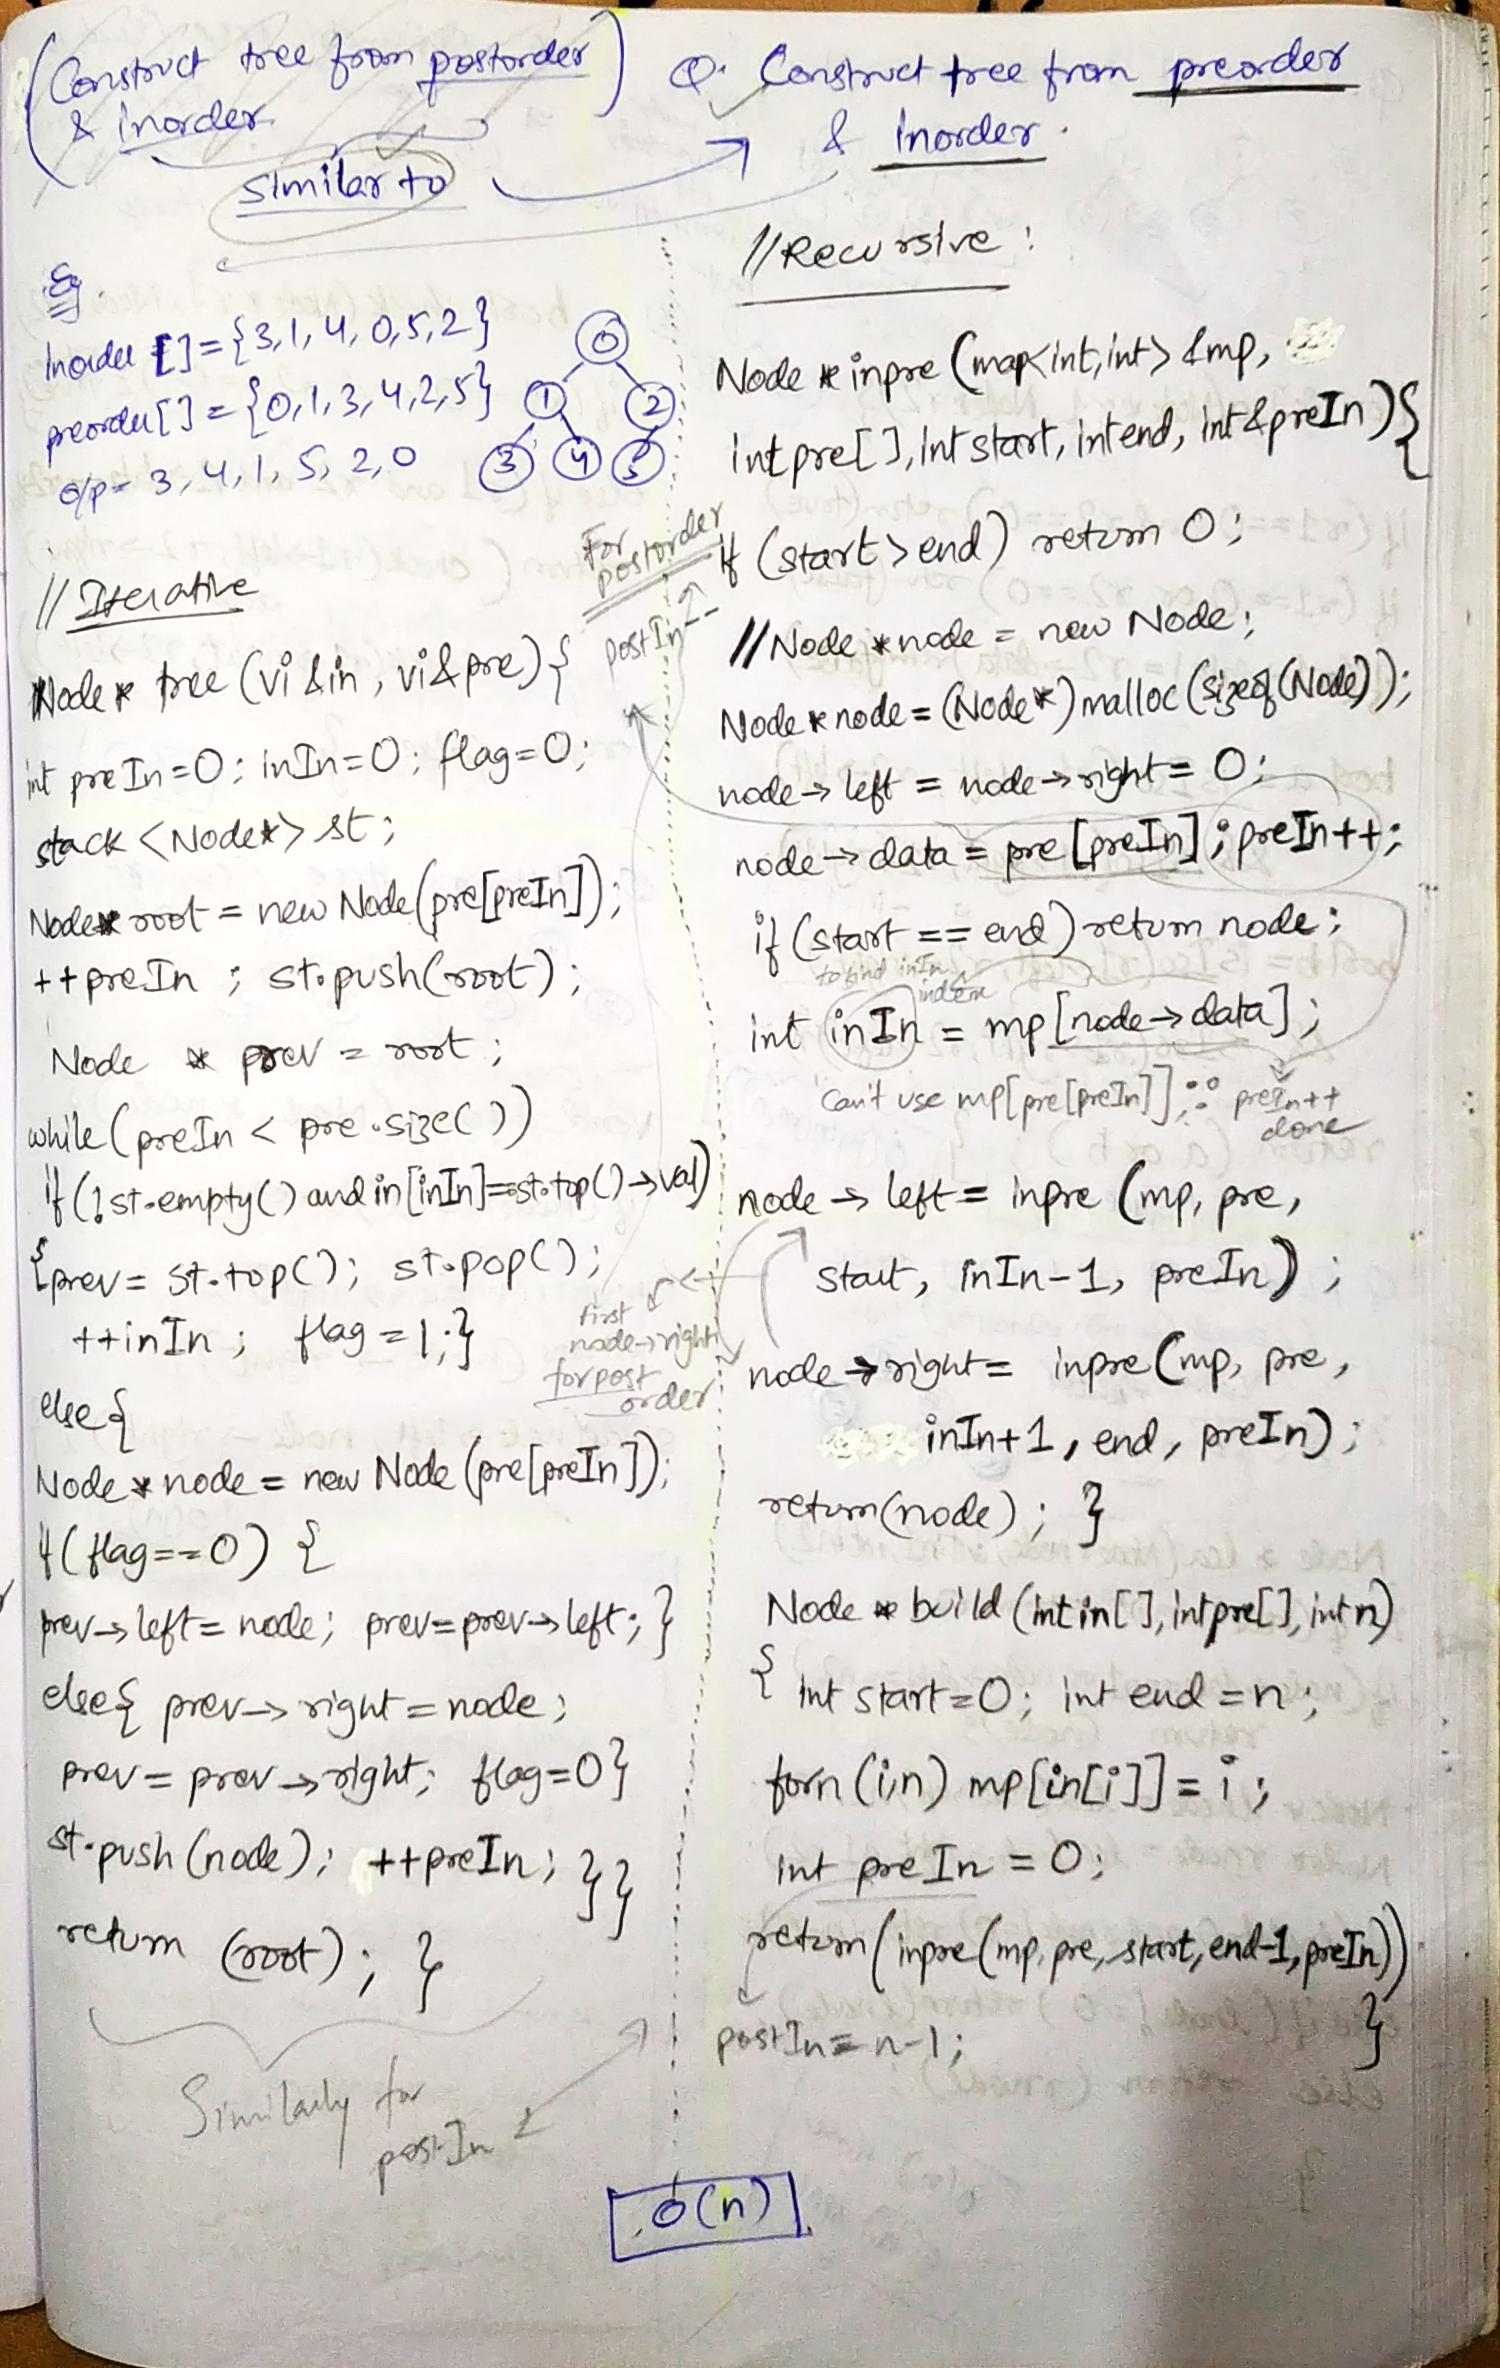 (Construct tree from postorder
& inorder)
similar to
Q. Construct tree from preorder
& inorder.
Eg.
Inorder []={3,1,4,0,5,2}
preorder[]={0,1,3,4,2,5}
o/p= 3,4,1,5,2,0
0
1 2
3 4 5
// Iterative
Node* tree (vi &in, vi &pre){
int preIn=0; inIn=0; flag=0;
stack <Node*> st;
Node* root = new Node(pre[preIn]);
++preIn ; st.push(root);
Node * prev = root;
while(preIn < pre.size())
if(!st.empty() and in[inIn]==st.top()->val)
{prev= st.top(); st.pop();
++inIn; flag=1;}
else{
Node*node = new Node(pre[preIn]);
if(flag==0) {
prev->left=node; prev=prev->left;}
else{ prev->right=node;
prev=prev->right; flag=0}
st.push(node); ++preIn; }}
return (root); }
Similarly for
postIn
For
postorder
postIn--
first
node->right
for post
order
// Recursive:
Node * inpre (map<int,int> &mp,
int pre[], int start, int end, int &preIn){
if (start>end) return 0;
//Node *node = new Node;
Node*node = (Node*)malloc(sizeof(Node));
node->left = node->right = 0;
node->data = pre[preIn]; preIn++;
if(start == end) return node;
to find inIn
index
int inIn = mp[node->data];
can't use mp[pre[preIn]]; ∵ preIn++
done
node->left = inpre (mp, pre,
start, inIn-1, preIn);
node->right= inpre(mp, pre,
inIn+1, end, preIn);
return(node); }
Node * build (int in[], int pre[], int n)
{ int start=0; int end=n;
forn(i,n) mp[in[i]]=i;
int preIn=0;
return(inpre(mp,pre,start,end-1,preIn))
}
postIn=n-1;
O(n)